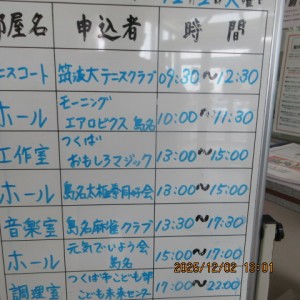 部屋名 申込者 時間
ニスコート 筑波大テニスクラブ 09:30～12:30
ホール モーニング
エアロビクス 島名 10:00～11:30
工作室 つくば
おもしろマジック 13:00～15:00
ホール 島名太極拳同好会 13:00～15:00
音楽室 島名麻雀クラブ 13:30～17:30
ホール 元気でいよう会
島名 15:00～17:00
調理室 つくば市こども部
こども未来センター 17:00～22:00
2025/12/02 13:01